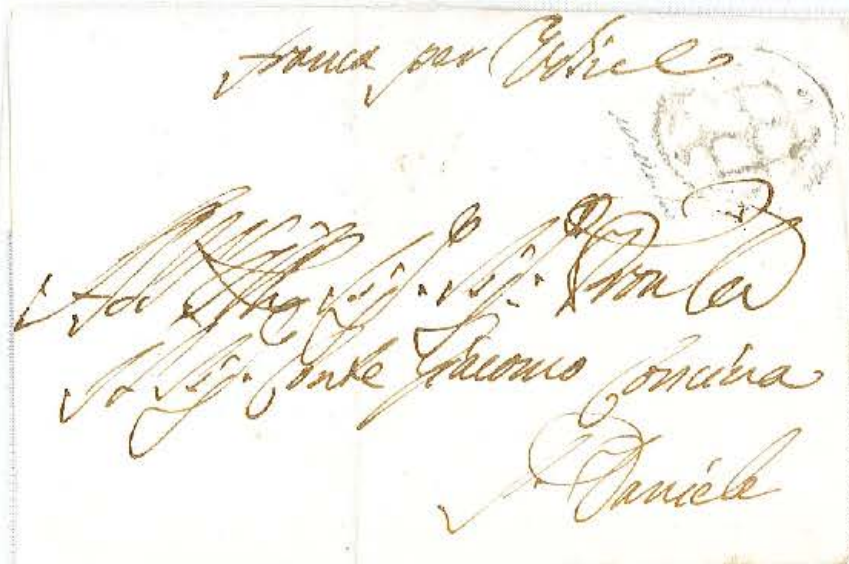 franca per Udine
All' Ill.mo Sig. Sig. Pron Col
Il Sig. Conte Giacomo Concina
S. Daniele